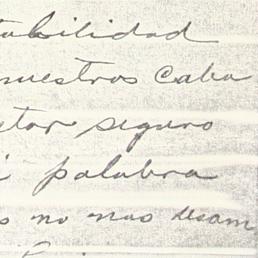 tabilidad
nuestros caba
star seguro
i palabra
s no nos desam